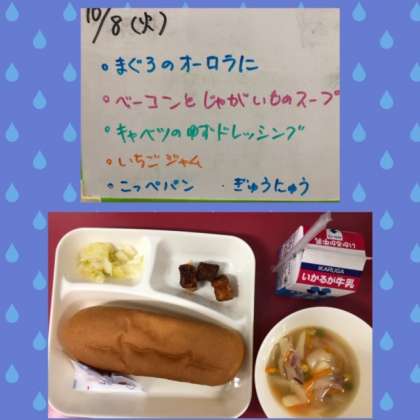 10/8(火)
・まぐろのオーロラに
・ベーコンとじゃがいものスープ
・キャベツのゆずドレッシング
・いちごジャム
・こっペパン ・ぎゅうにゅう
IKARUGA
いかるが牛乳